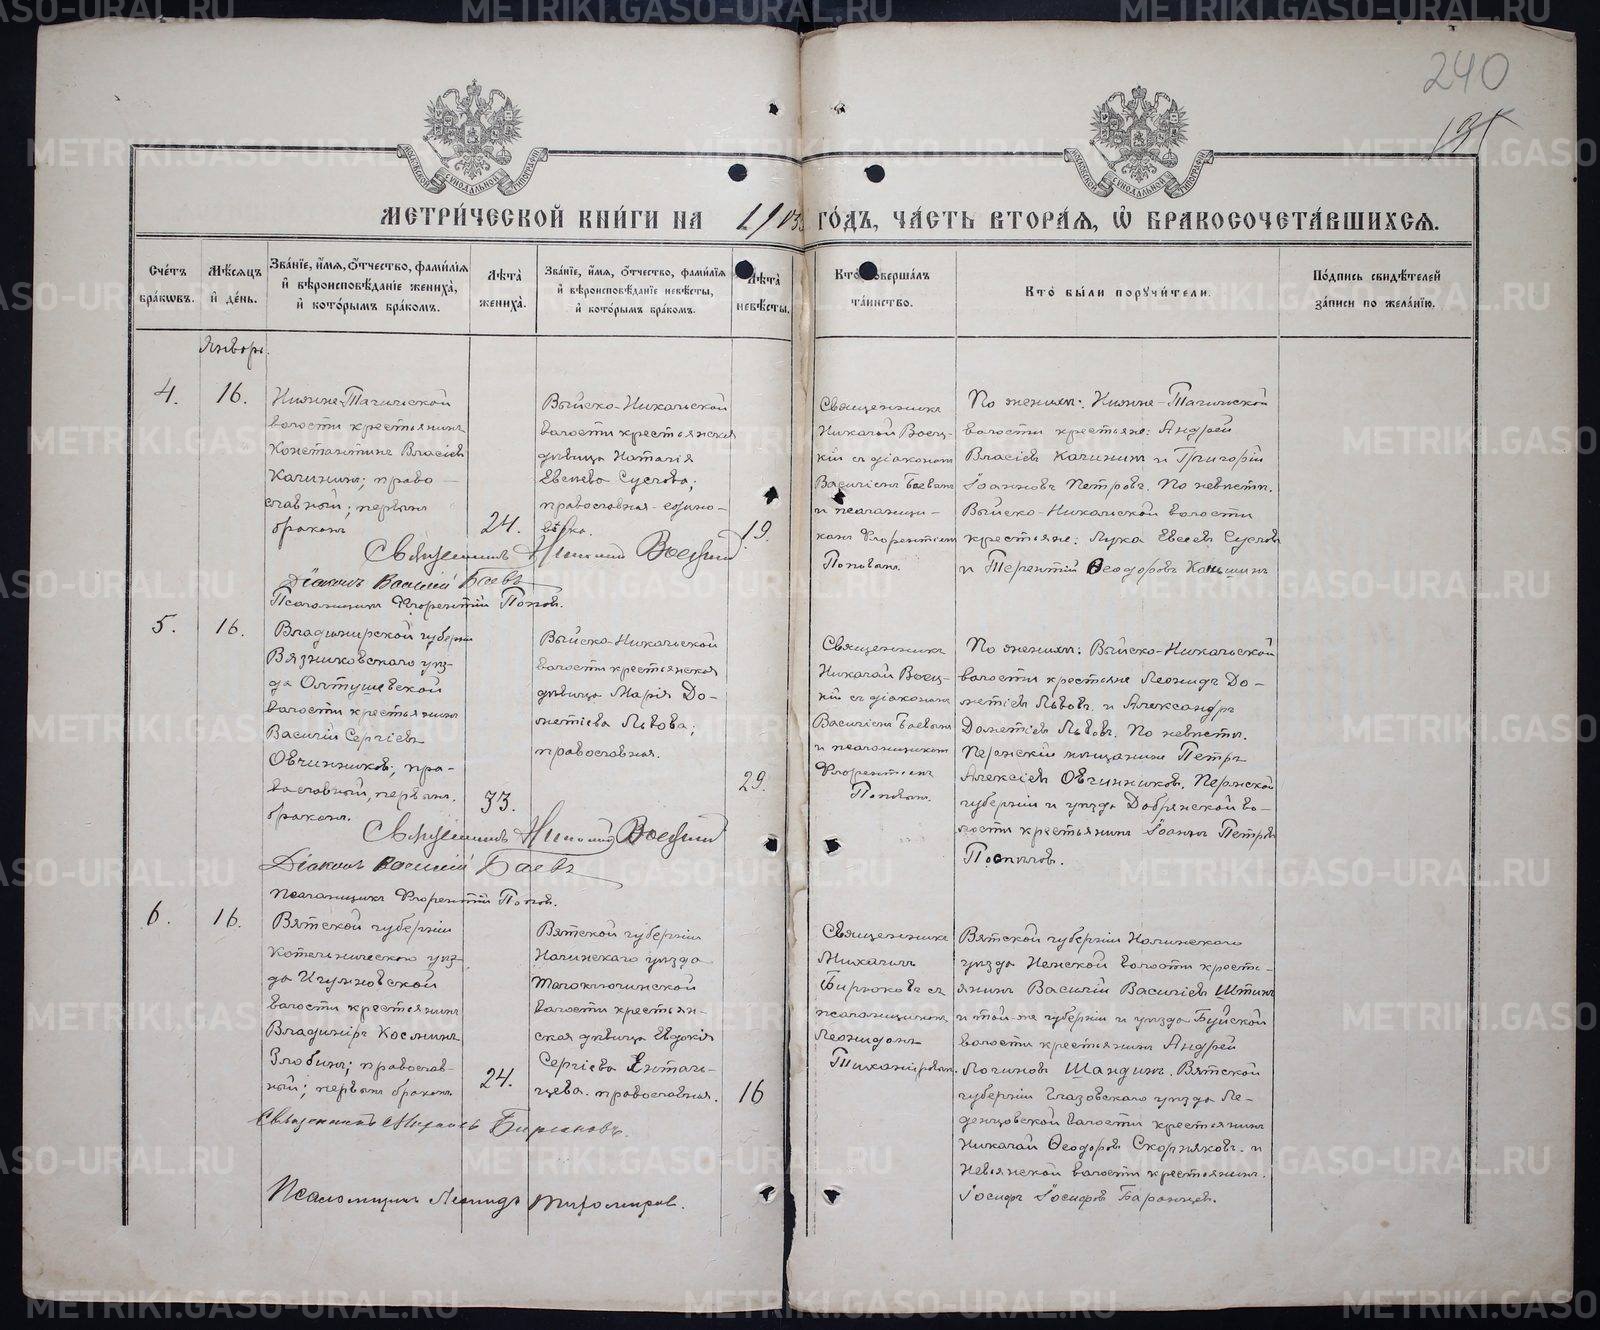 240
МЕТРИ́ЧЕСКОЙ КНИ́ГИ НА 1903 ГО́ДЪ, ЧА́СТЬ ВТОРА́Я, Ѡ БРАКОСОЧЕТА́ВШИХСЯ.
Сче́тъ бра́ковъ.
Мѣ́сяцъ и де́нь.
Зва́нїе, и́мя, ѻ́тчество, фами́лїя и вѣроисповѣ́данїе жениха̀, и кото́рымъ бра́комъ.
Лѣ́та жениха̀.
Зва́нїе, и́мя, ѻ́тчество, фами́лїя и вѣроисповѣ́данїе невѣ́сты, и кото́рымъ бра́комъ.
Лѣ́та невѣ́сты.
Кто̀ соверша́лъ та́инство.
Кто̀ бы́ли поручи́тели.
По́дпись свидѣ́телей за́писи по жела́нїю.
Январь.
4.
16.
Нижне-Тагильской
волости крестьянинъ
Константинъ Власіевъ
Калининъ; право-
славный; первымъ
бракомъ
24.
Выйско-Никольской
волости крестьянская
дѣвица Наталія
Евсѣева Суслова;
православная - едино-
вѣрка.
19.
Священникъ
Николай Воец-
кій съ діакономъ
Василіемъ Баевымъ
и псаломщи-
комъ Флорентіемъ
Поповымъ.
По женихѣ: Нижне-Тагильской
волости крестьяне: Андрей
Власіевъ Калининъ и Григорій
Іоанновъ Петровъ. По невѣстѣ.
Выйско-Никольской волости
крестьяне: Лука Евсеевъ Сусловъ
и Терентій Ѳеодоровъ Каньшинъ
Священникъ Николай Воецкій
Діаконъ Василій Баевъ
Псаломщикъ Флорентій Поповъ.
5.
16.
Владимирской губерніи
Вязниковскаго уѣз-
да Олтушевской
волости крестьянинъ
Василій Сергіевъ
Овчинниковъ; пра-
вославный, первымъ
бракомъ.
33.
Выйско-Никольской
волости крестьянская
дѣвица Марія До-
метіева Львова;
православная.
29.
Священникъ
Николай Воец-
кій съ діакономъ
Василіемъ Баевымъ
и псаломщикомъ
Флорентіемъ
Поповымъ.
По женихѣ: Выйско-Никольской
волости крестьяне Леонидъ До-
метіевъ Львовъ. и Александръ
Дометіевъ Львовъ. По невѣстѣ.
Пермскій мѣщанинъ Петръ
Алексіевъ Овчинниковъ. Пермской
губерніи и уѣзда Добрянской во-
лости крестьянинъ Іоаннъ Петровъ
Поспѣловъ.
Священникъ Николай Воецкій
Діаконъ Василій Баевъ
Псаломщикъ Флорентій Поповъ.
6.
16.
Вятской губерніи
Котельническаго уѣз-
да Игумновской
волости крестьянинъ
Владиміръ Косминъ
Злобинъ; православ-
ный; первымъ бракомъ
24.
Вятской губерніи
Нолинскаго уѣзда
Талоключинской
волости крестьян-
ская дѣвица Евдокія
Сергіева
православная.
16
Священникъ
Михаилъ
Бирюковъ съ
псаломщикомъ
Леонидомъ
Тихомировымъ.
Вятской губерніи Нолинскаго
уѣзда Немской волости кресть-
янинъ Василій Василіевъ Штинъ
и той-же губерніи и уѣзда Буйской
волости крестьянинъ Андрей
Логиновъ Шандинъ. Вятской
губерніи Глазовскаго уѣзда Ле-
денцовской волости крестьянинъ
Николай Ѳеодоровъ Скорняковъ. и
Невьянской волости крестьянинъ.
Іосифъ Іосифовъ Баранцевъ.
Священникъ Михаилъ Бирюковъ.
Псаломщикъ Леонидъ Тихомировъ.
METRIKI.GASO-URAL.RU